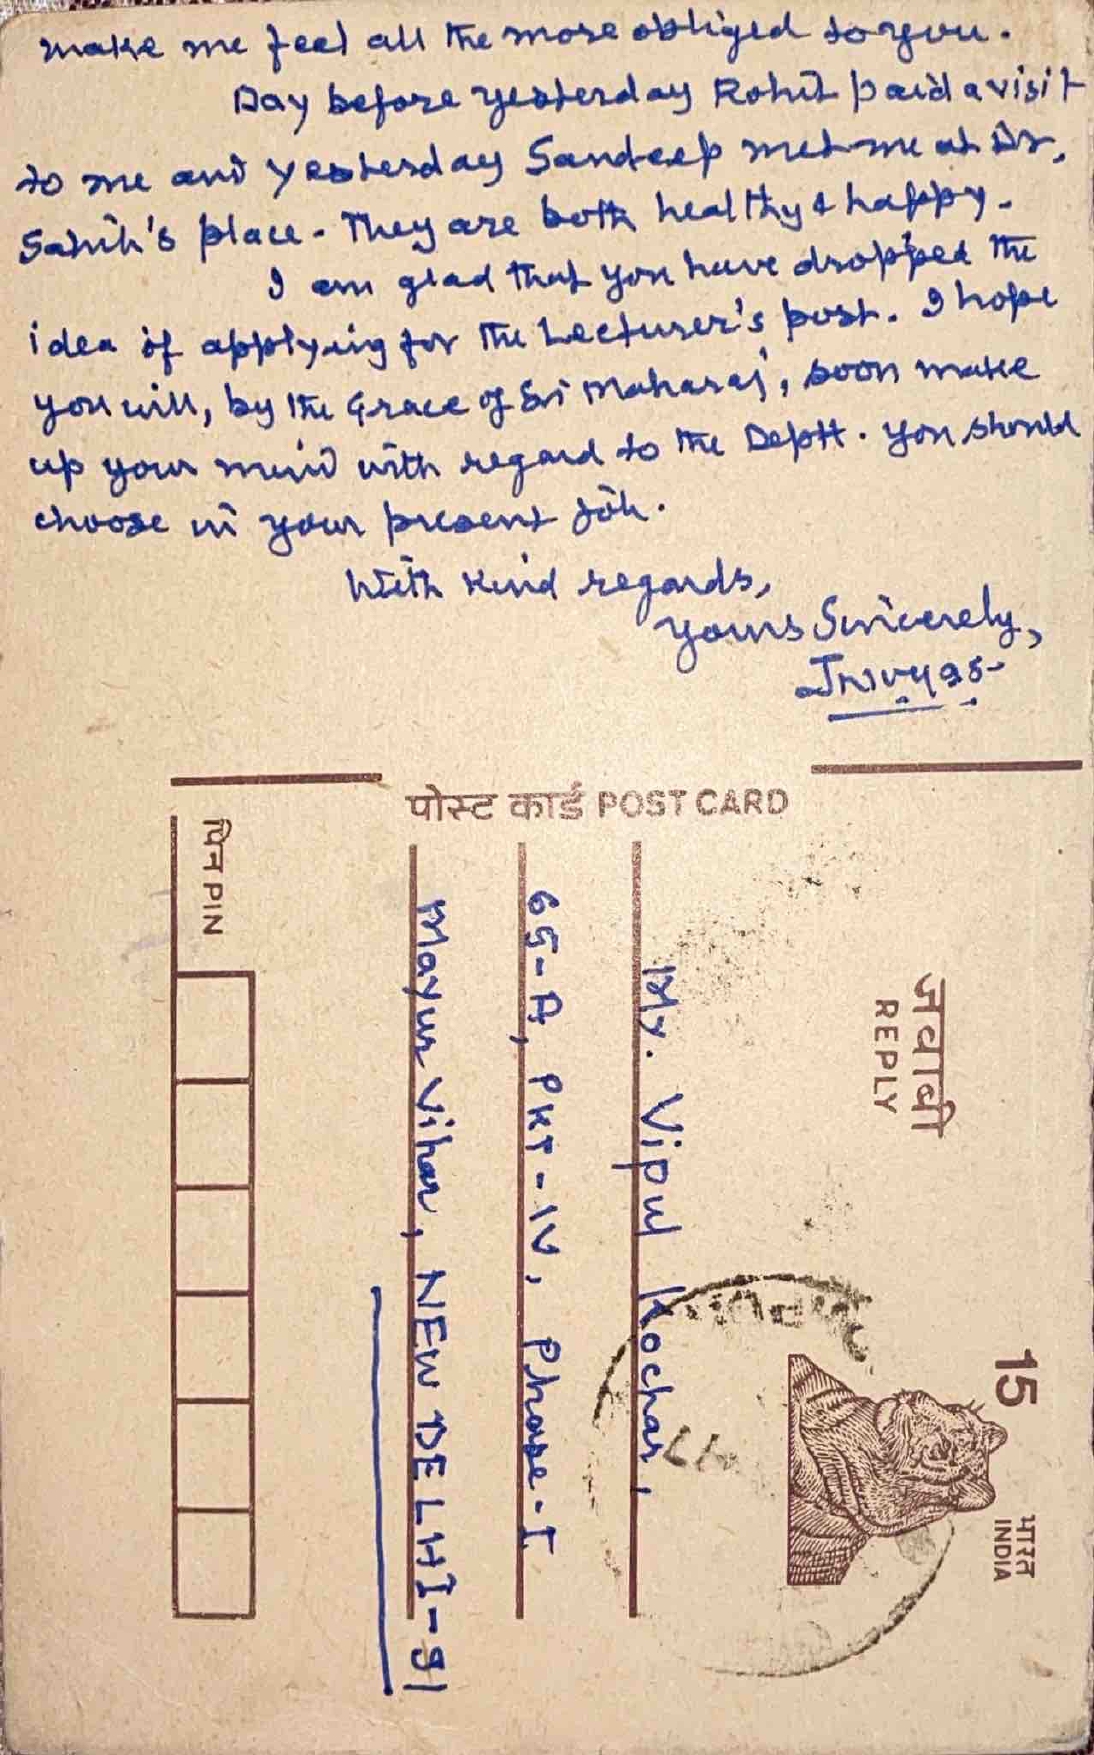 make me feel all the more obliged to you.
Day before yesterday Rohit paid a visit
to me and yesterday Sandeep met me at Dr.
Sahib's place. They are both healthy & happy.
I am glad that you have dropped the
idea of applying for the Lecturer's post. I hope
you will, by the Grace of Sri Maharaj, soon make
up your mind with regard to the Deptt. you should
choose in your present job.
With kind regards,
Yours Sincerely,
पोस्ट कार्ड POST CARD
जवाबी
REPLY
15
भारत
INDIA
Mr. Vipul Kochar,
65-A, PKT-IV, Phase-I
Mayur Vihar, NEW DELHI-91
पिन PIN